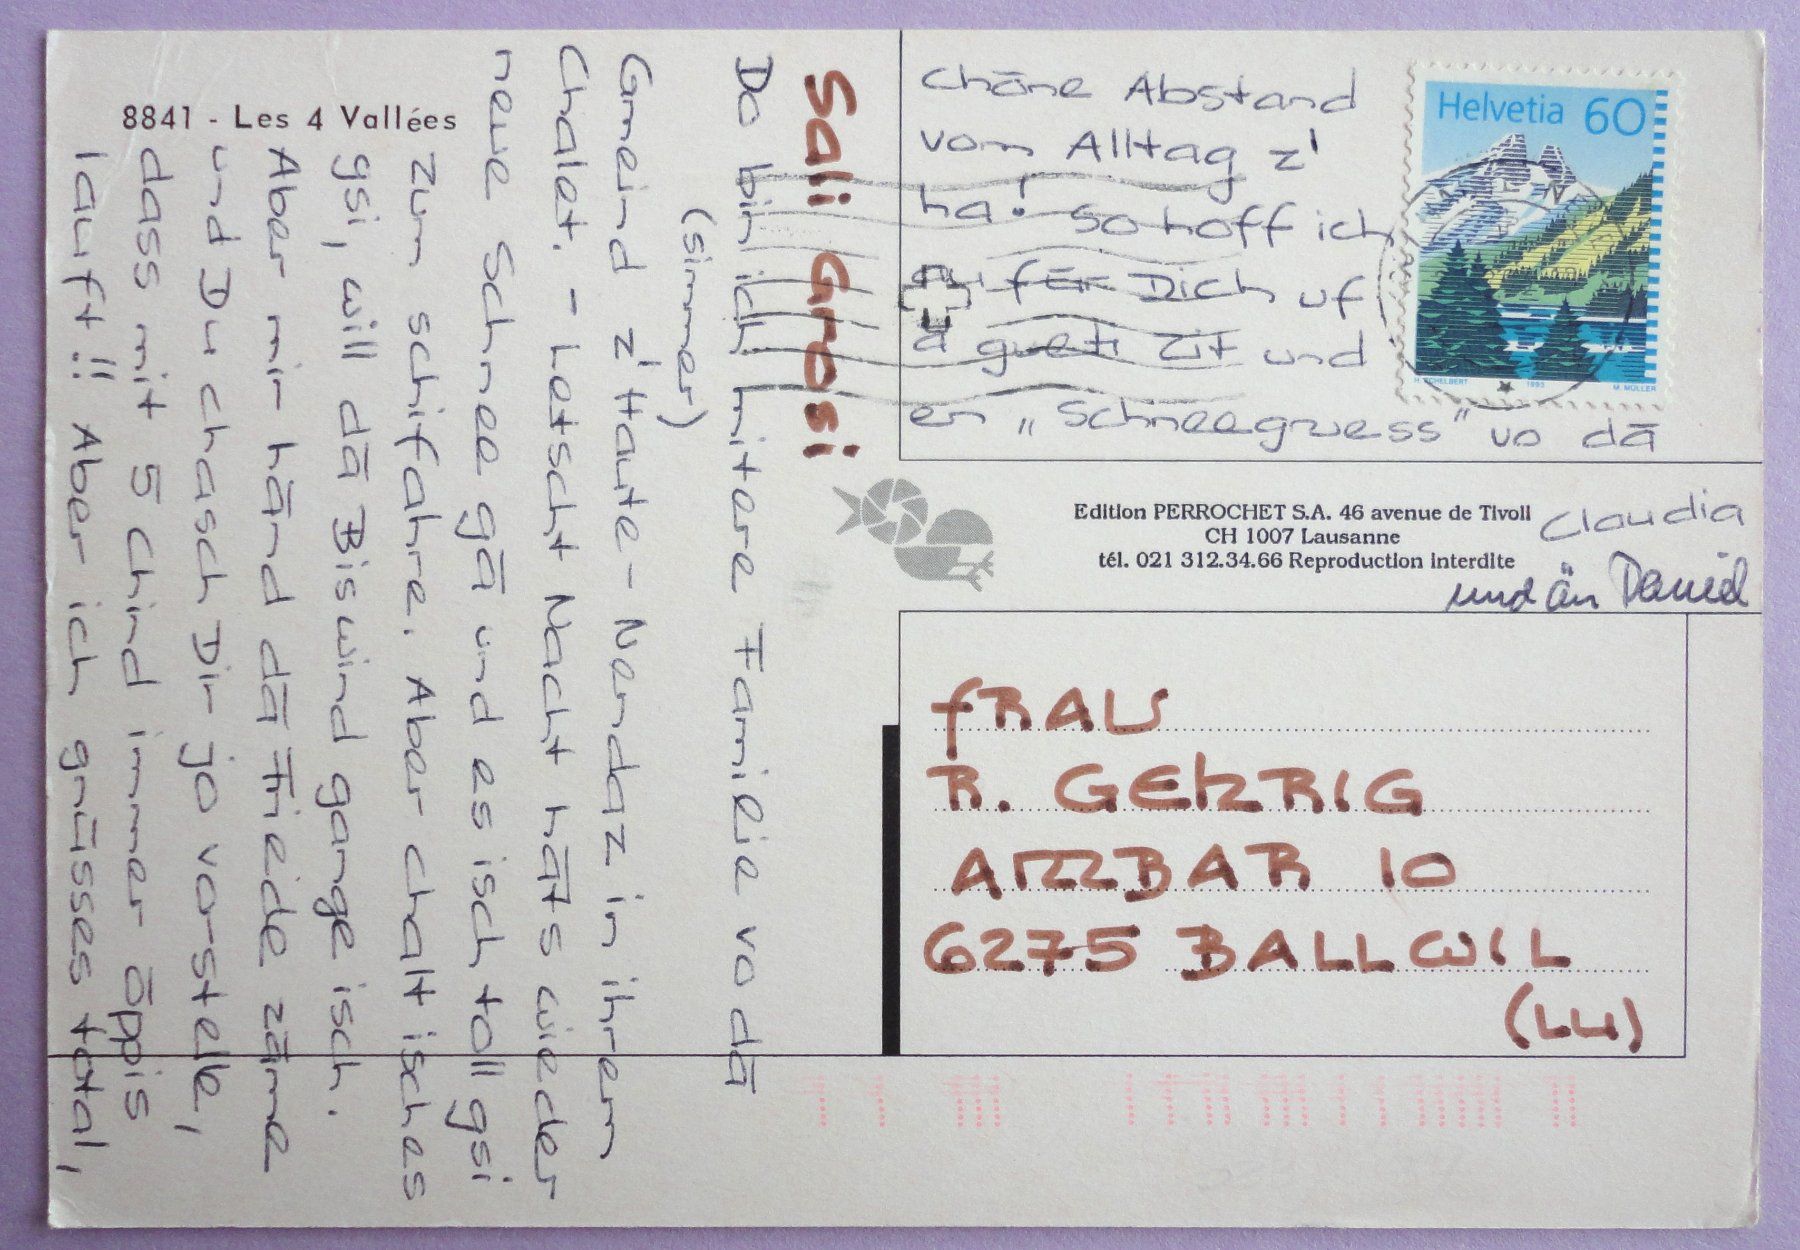 8841 - Les 4 Vallées
Sali Grosi
Do bin ich mitere Familie vo dä
(simmer)
Gmeind z'Haute-Nendaz in ihrem
Chalet. - Letscht Nacht häts wieder
neue Schnee gä und es isch toll gsi
zum schifahre. Aber chalt isches
gsi, will dä Biswind gange isch.
Aber mir händ dä Friede zäme
und Du chasch Dir jo vorstelle,
dass mit 5 Chind immer öppis
lauft!! Aber ich grüsses total,
chöne Abstand
vom Alltag z'
ha! So hoff ich
au für Dich uf
ä gueti Zit und
en „Schneegruess" vo dä
Claudia
und än Daniel
Helvetia 60
H. SCHELBERT 1993 M. MÜLLER
Edition PERROCHET S.A. 46 avenue de Tivoli
CH 1007 Lausanne
tél. 021 312.34.66 Reproduction interdite
FRAU
R. GEHRIG
AMBAR 10
6275 BALLWIL
(LU)